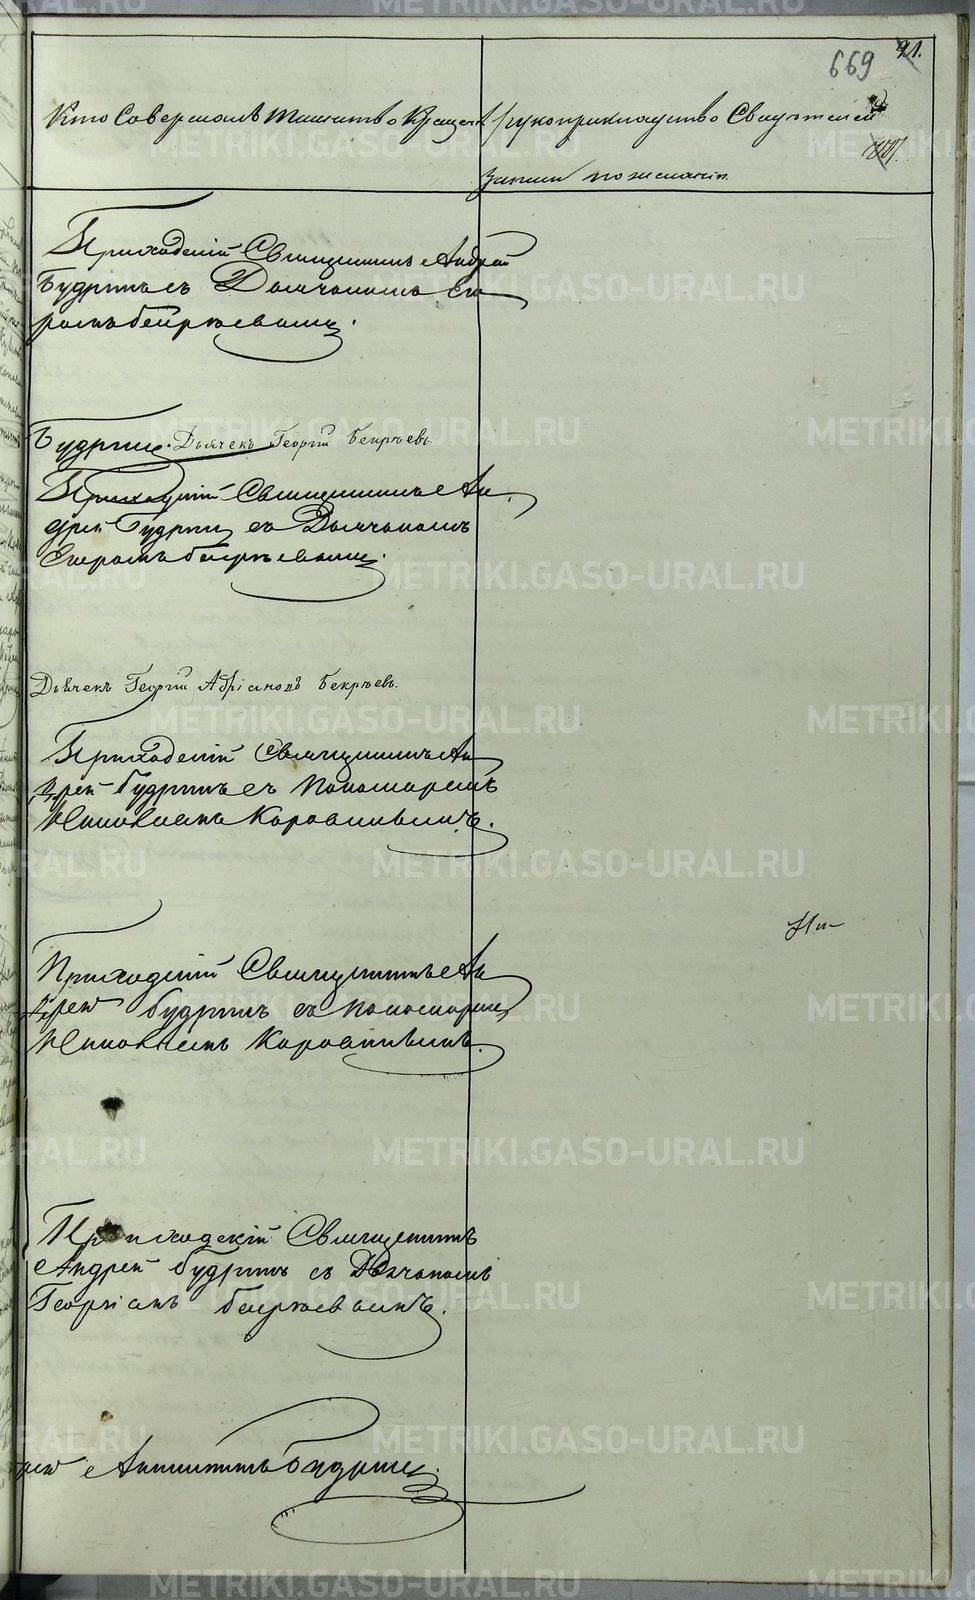 669 91.
Кто Совершалъ Таинство Крещенія
рукоприкладство Свидѣтелей
записи по желанію.
Приходскій Священникъ Андрей
Будринъ съ Дьячкомъ Его
ромъ Бекрѣевымъ.
Будринъ. Дьячекъ Георгій Бекрѣевъ.
Приходскій Священникъ Ан
дрей Будринъ съ Дьячкомъ
Егоромъ Бекрѣевымъ.
Дьячекъ Георгій Адріановъ Бекрѣевъ.
Приходскій Священникъ Ан
дрей Будринъ съ Пономаремъ
Коровинымъ.
Приходскій Священникъ Ан
дрей Будринъ съ Пономаремъ
Коровинымъ.
Приходскій Священникъ
Андрей Будринъ съ Дьячкомъ
Георгіемъ Бекрѣевымъ.
Будринъ.
METRIKI.GASO-URAL.RU